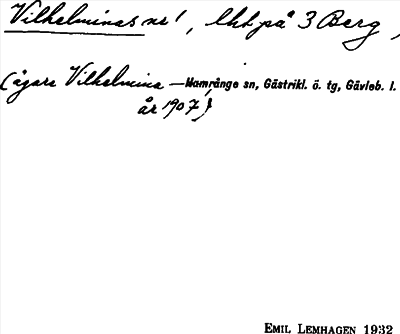 Vilhelminas nr 1, lht på 3 Berg,
(ägare Vilhelmina — Hamrånge sn, Gästrikl. ö. tg, Gävleb. l.
år 1907)
EMIL LEMHAGEN 1932